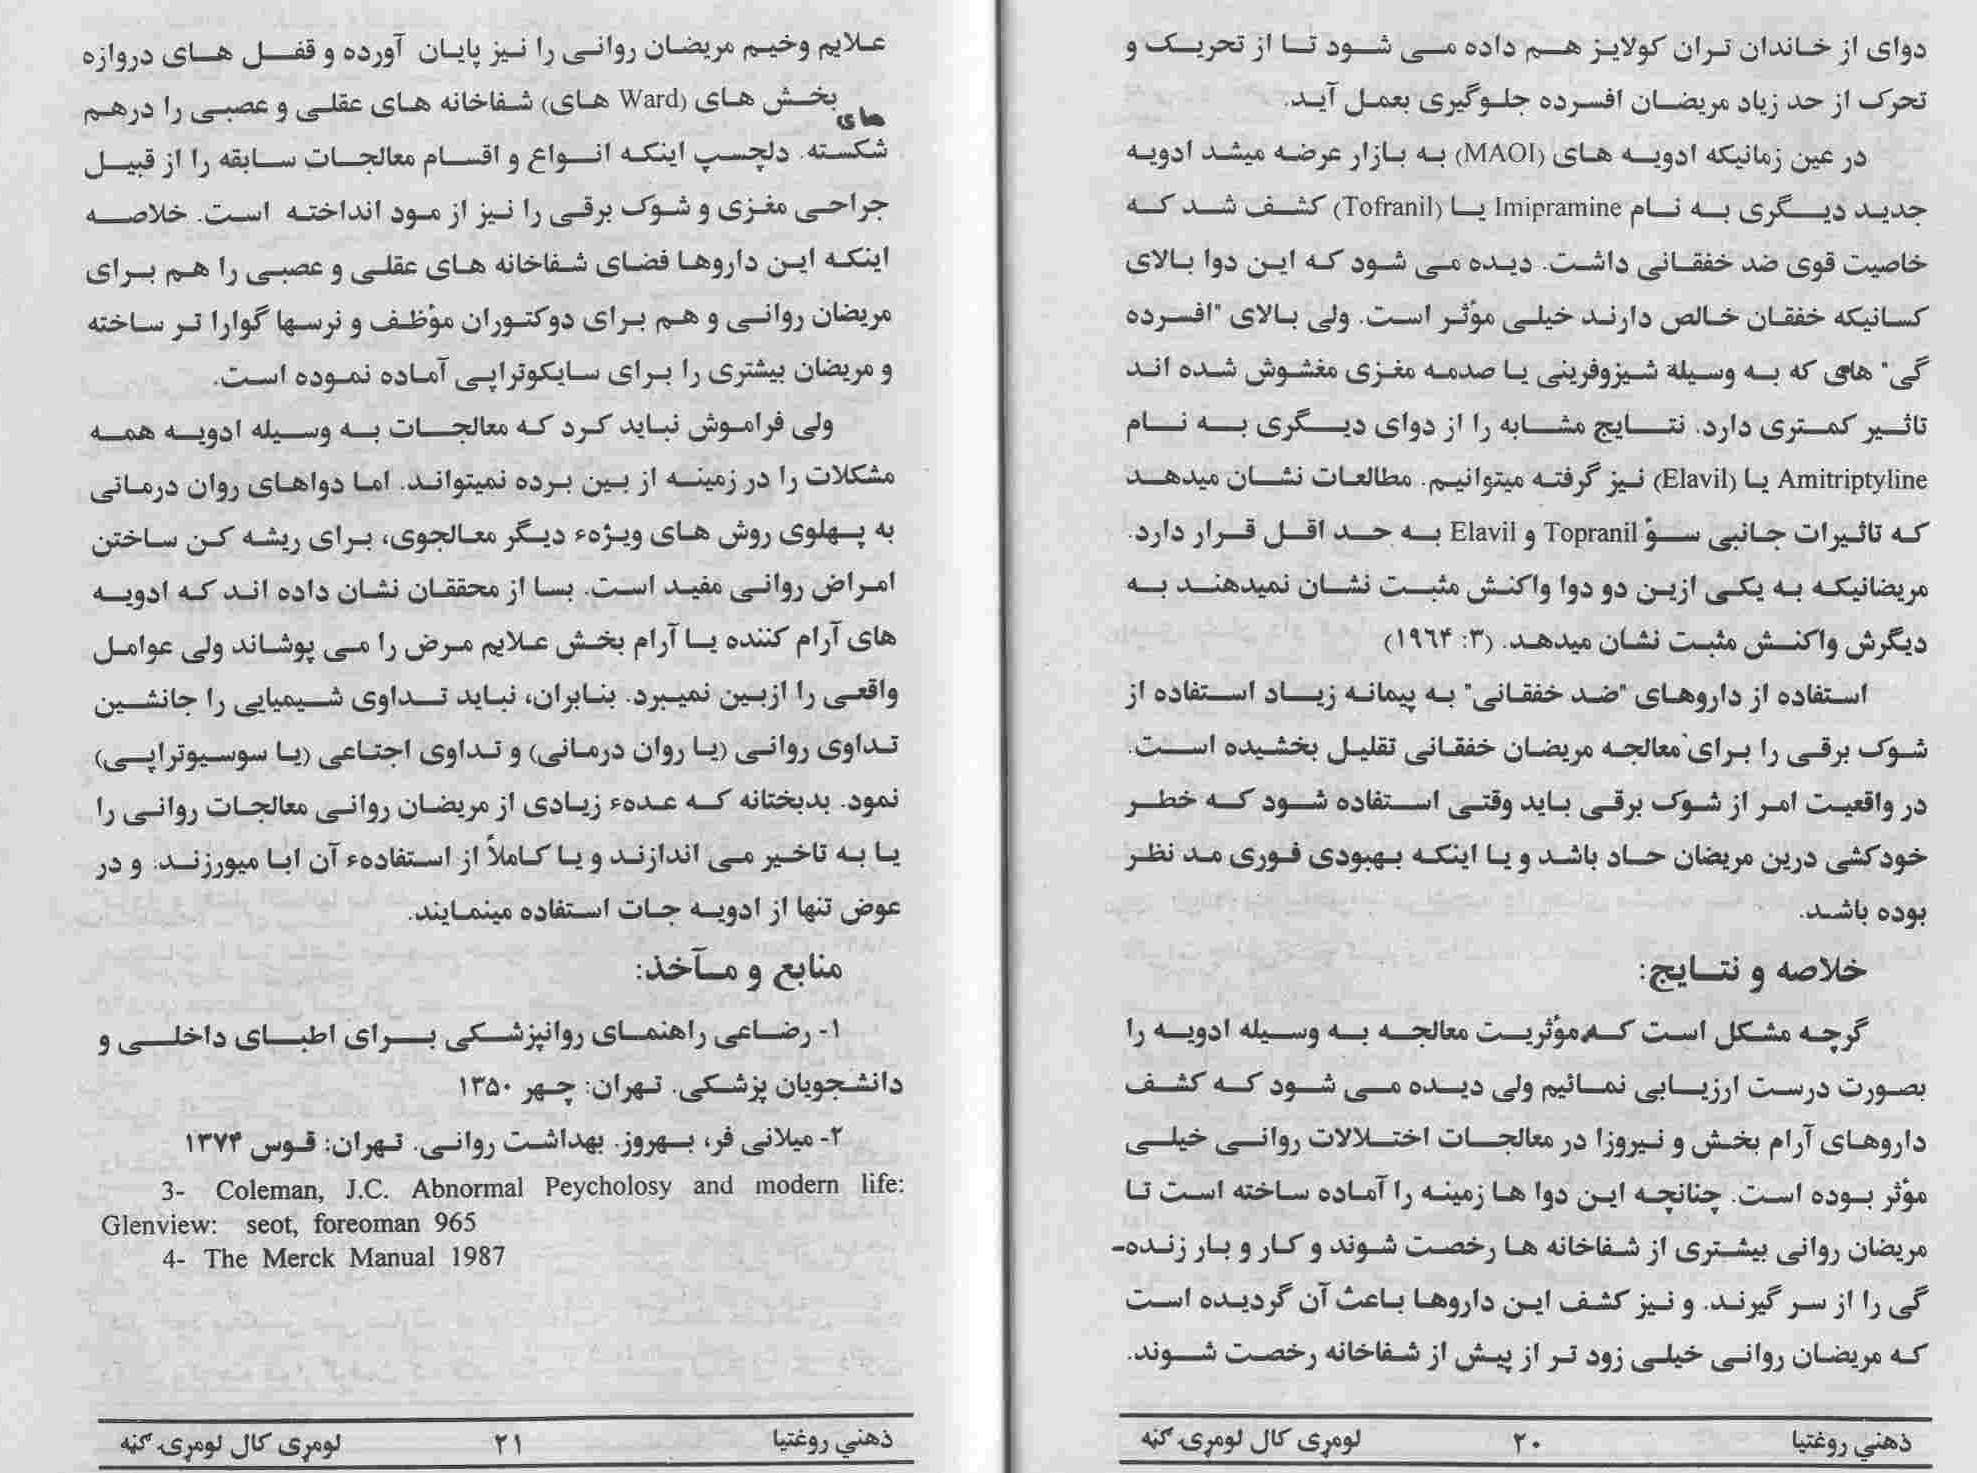 دوای از خاندان تران کولایز هم داده می شود تا از تحریک و
تحرک از حد زیاد مریضان افسرده جلوگیری بعمل آید.
در عین زمانیکه ادویه های (MAOI) به بازار عرضه میشد ادویه
جدید دیگری به نام Imipramine یا (Tofranil) کشف شد که
خاصیت قوی ضد خفقانی داشت. دیده می شود که این دوا بالای
کسانیکه خفقان خالص دارند خیلی مؤثر است. ولی بالای "افسرده
گی" های که به وسیله شیزوفرینی یا صدمه مغزی مغشوش شده اند
تاثیر کمتری دارد. نتایج مشابه را از دوای دیگری به نام
Amitriptyline یا (Elavil) نیز گرفته میتوانیم. مطالعات نشان میدهد
که تاثیرات جانبی سؤ Topranil و Elavil به حد اقل قرار دارد.
مریضانیکه به یکی ازین دو دوا واکنش مثبت نشان نمیدهند به
دیگرش واکنش مثبت نشان میدهد. (۳: ۱۹۶۴)
استفاده از داروهای "ضد خفقانی" به پیمانه زیاد استفاده از
شوک برقی را برای معالجه مریضان خفقانی تقلیل بخشیده است.
در واقعیت امر از شوک برقی باید وقتی استفاده شود که خطر
خودکشی درین مریضان حاد باشد و یا اینکه بهبودی فوری مد نظر
بوده باشد.
خلاصه و نتایج:
گرچه مشکل است که مؤثریت معالجه به وسیله ادویه را
بصورت درست ارزیابی نمائیم ولی دیده می شود که کشف
داروهای آرام بخش و نیروزا در معالجات اختلالات روانی خیلی
مؤثر بوده است. چنانچه این دوا ها زمینه را آماده ساخته است تا
مریضان روانی بیشتری از شفاخانه ها رخصت شوند و کار و بار زنده-
گی را از سر گیرند. و نیز کشف این داروها باعث آن گردیده است
که مریضان روانی خیلی زود تر از پیش از شفاخانه رخصت شوند.
ذهني روغتیا ۲۰ لومړی کال لومړۍ ګڼه
علایم وخیم مریضان روانی را نیز پایان آورده و قفل های دروازه
های بخش های (Ward های) شفاخانه های عقلی و عصبی را درهم
شکسته. دلچسپ اینکه انواع و اقسام معالجات سابقه را از قبیل
جراحی مغزی و شوک برقی را نیز از مود انداخته است. خلاصه
اینکه این داروها فضای شفاخانه های عقلی و عصبی را هم برای
مریضان روانی و هم برای دوکتوران مؤظف و نرسها گوارا تر ساخته
و مریضان بیشتری را برای سایکوتراپی آماده نموده است.
ولی فراموش نباید کرد که معالجات به وسیله ادویه همه
مشکلات را در زمینه از بین برده نمیتواند. اما دواهای روان درمانی
به پهلوی روش های ویژهء دیگر معالجوی، برای ریشه کن ساختن
امراض روانی مفید است. بسا از محققان نشان داده اند که ادویه
های آرام کننده یا آرام بخش علایم مرض را می پوشاند ولی عوامل
واقعی را ازبین نمیبرد. بنابران، نباید تداوی شیمیایی را جانشین
تداوی روانی (یا روان درمانی) و تداوی اجتاعی (یا سوسیوتراپی)
نمود. بدبختانه که عدهء زیادی از مریضان روانی معالجات روانی را
یا به تاخیر می اندازند و یا کاملاً از استفادهء آن ابا میورزند. و در
عوض تنها از ادویه جات استفاده مینمایند.
منابع و مآخذ:
۱- رضاعی راهنمای روانپزشکی برای اطبای داخلی و
دانشجویان پزشکی. تهران: چهر ۱۳۵۰
۲- میلانی فر، بهروز. بهداشت روانی. تهران: قوس ۱۳۷۴
3- Coleman, J.C. Abnormal Peycholosy and modern life:
Glenview: seot, foreoman 965
4- The Merck Manual 1987
ذهني روغتیا ۲۱ لومړی کال لومړۍ ګڼه